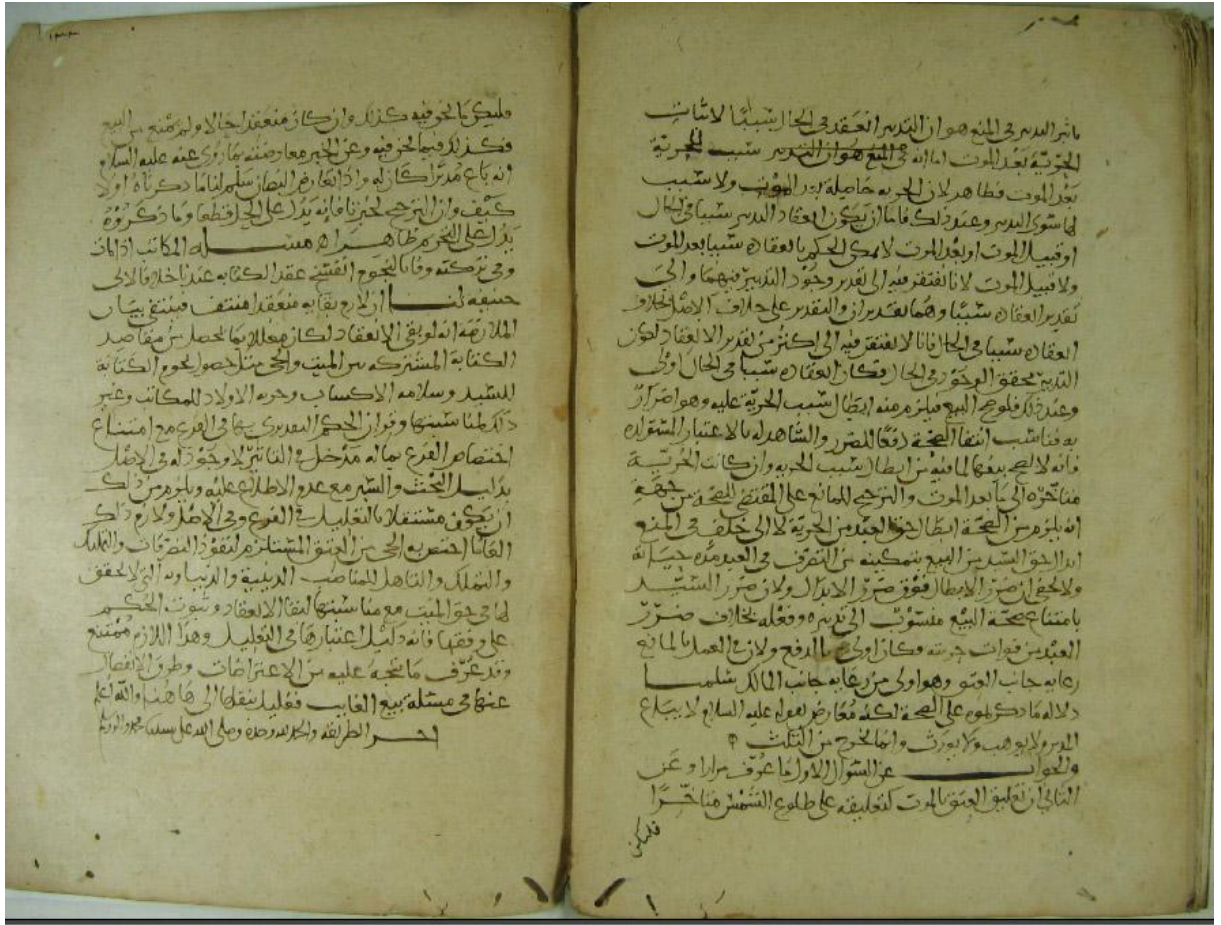 تأثير التدبير في المنع هو ان التدبير انعقد في الحال سببا لاثبات
الحرية بعد الموت اما انه في المنع هو ان التدبير سبب للحرية
بعد الموت فظاهر لان الحرية حاصلة بعد الموت ولا سبب
لها سوى التدبير وعند ذلك فاما ان يكون انعقاد التدبير سببا في الحال
او قبيل الموت او بعد الموت لا يمكن الحكم بانعقاده سببا بعد الموت
ولا قبيل الموت لانا نفتقر فيه الى تقدير وجود التدبير فيهما والى
تقدير انعقاده سببا وهما تقديران والتقدير على خلاف الاصل بخلاف
انعقاده سببا في الحال فانا لا نفتقر فيه الى اكثر من تقدير الانعقاد لكون
التدبير محقق الوجود في الحال فكان انعقاده سببا في الحال اولى
وعند ذلك فلو صح البيع فيلزم منه ابطال سبب الحرية عليه وهو اضرار
به فناسب انتفا الصحة دفعا للضرر والشاهد له بالاعتبار المستولدة
فانه لا يصح بيعها لما فيه من ابطال سبب الحرية وان كانت الحرية
متأخرة الى ما بعد الموت والترجيح للمانع على المقتضي للصحة من جهة
انه يلزم من الصحة ابطال حق العبد من الحرية لا الى خلف وفي المنع
ابدال حق السيد من البيع بتمكينه من التصرف في العبد مدة حياته
ولا يخفى ان ضرر الابطال فوق ضرر الابدال ولان ضرر السيد
بامتناع صحة البيع منسوب الى تدبيره وفعله بخلاف ضرر
العبد من فوات حريته فكان اولى بالدفع ولان في العمل بالمانع
رعاية جانب العتق وهو اولى من رعاية جانب المالك سلمنا
دلالة ما ذكرتموه على الصحة لكنه معارض بقوله عليه السلام لا يباع
المدبر ولا يوهب ولا يورث وانما يخرج من الثلث
والجواب عن السؤال الاول ما عرف مرارا وعن
الثاني ان تعليق العتق بالموت كتعليقه على طلوع الشمس متأخرا
فليكن
فليكن ما نحن فيه كذلك وان كان منعقدا حالا ولم يمتنع من البيع
فكذلك فيما نحن فيه وعن الخبر معارضته بما روى عنه عليه السلام
انه باع مدبرا كان له واذا تعارض النصان سلم لنا ما ذكرناه اولا
كيف وان الترجيح لخبرنا فانه يدل على الحل قطعا وما ذكروه
يدل على التحريم ظاهرا مسئلة المكاتب اذا مات
وفي تركته وفا بالنجوم انفسخ عقد الكتابة عندنا خلافا لابي
حنيفة لنا ان لازم بقائه منعقدا منتف فينتفي بيان
الملازمة انه لو بقي الانعقاد لكان معللا بما يحصل من مقاصد
الكتابة المشتركة بين الميت والحي مثل حصول نجوم الكتابة
للسيد وسلامة الاكساب وحرية الاولاد للمكاتب وغير
ذلك لمناسبتها وقران الحكم التقديري بها في الفرع مع امتناع
اختصاص الفرع بما له مدخل في التأثير لا وجود له في الاصل
بدليل البحث والسبر مع عدم الاطلاع عليه ويلزم من ذلك
ان يكون مستقلا بالتعليل في الفرع وفي الاصل ولازم ذلك
الغا ما اختص به الحي من العتق المستلزم لنفوذ التصرفات والتمليك
والتملك والتأهل للمناصب الدينية والدنياوية التي لا تحقق
لها في حق الميت مع مناسبتها لبقا الانعقاد وثبوت الحكم
على وفقها فانه دليل اعتبارها في التعليل وهذا اللازم ممتنع
وقد عرف ما يتجه عليه من الاعتراضات وطرق الانفصال
عنها في مسئلة بيع الغايب فعليك بنقلها الى ها هنا والله اعلم
اخر الطريقة والحمد لله وحده وصلى الله على سيدنا محمد واله وسلم